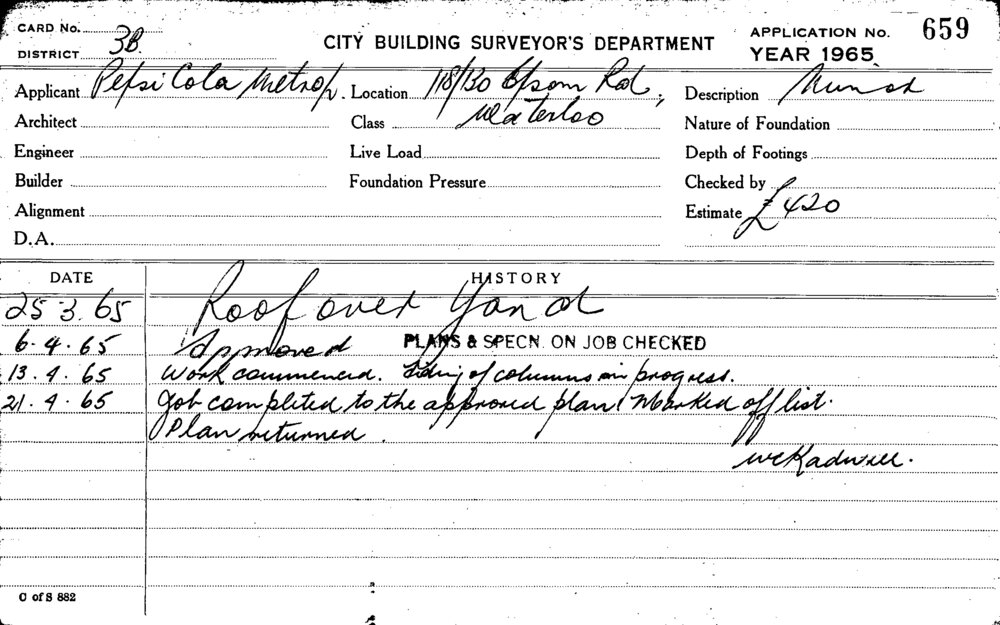 CARD No.
DISTRICT 3B
CITY BUILDING SURVEYOR'S DEPARTMENT
APPLICATION No. 659
YEAR 1965
Applicant Pepsi Cola Metrop. Location 118/130 Epsom Rd, Description Minor
Architect Class Waterloo Nature of Foundation
Engineer Live Load Depth of Footings
Builder Foundation Pressure Checked by
Alignment Estimate £420
D.A.
DATE HISTORY
25 3. 65 Roof over Yard
6. 4. 65 Approved PLANS & SPECN. ON JOB CHECKED
13. 4. 65 Work commenced. of columns in progress.
21. 4. 65 Job completed to the approved plan. Marked off list.
Plan returned.
C of S 882